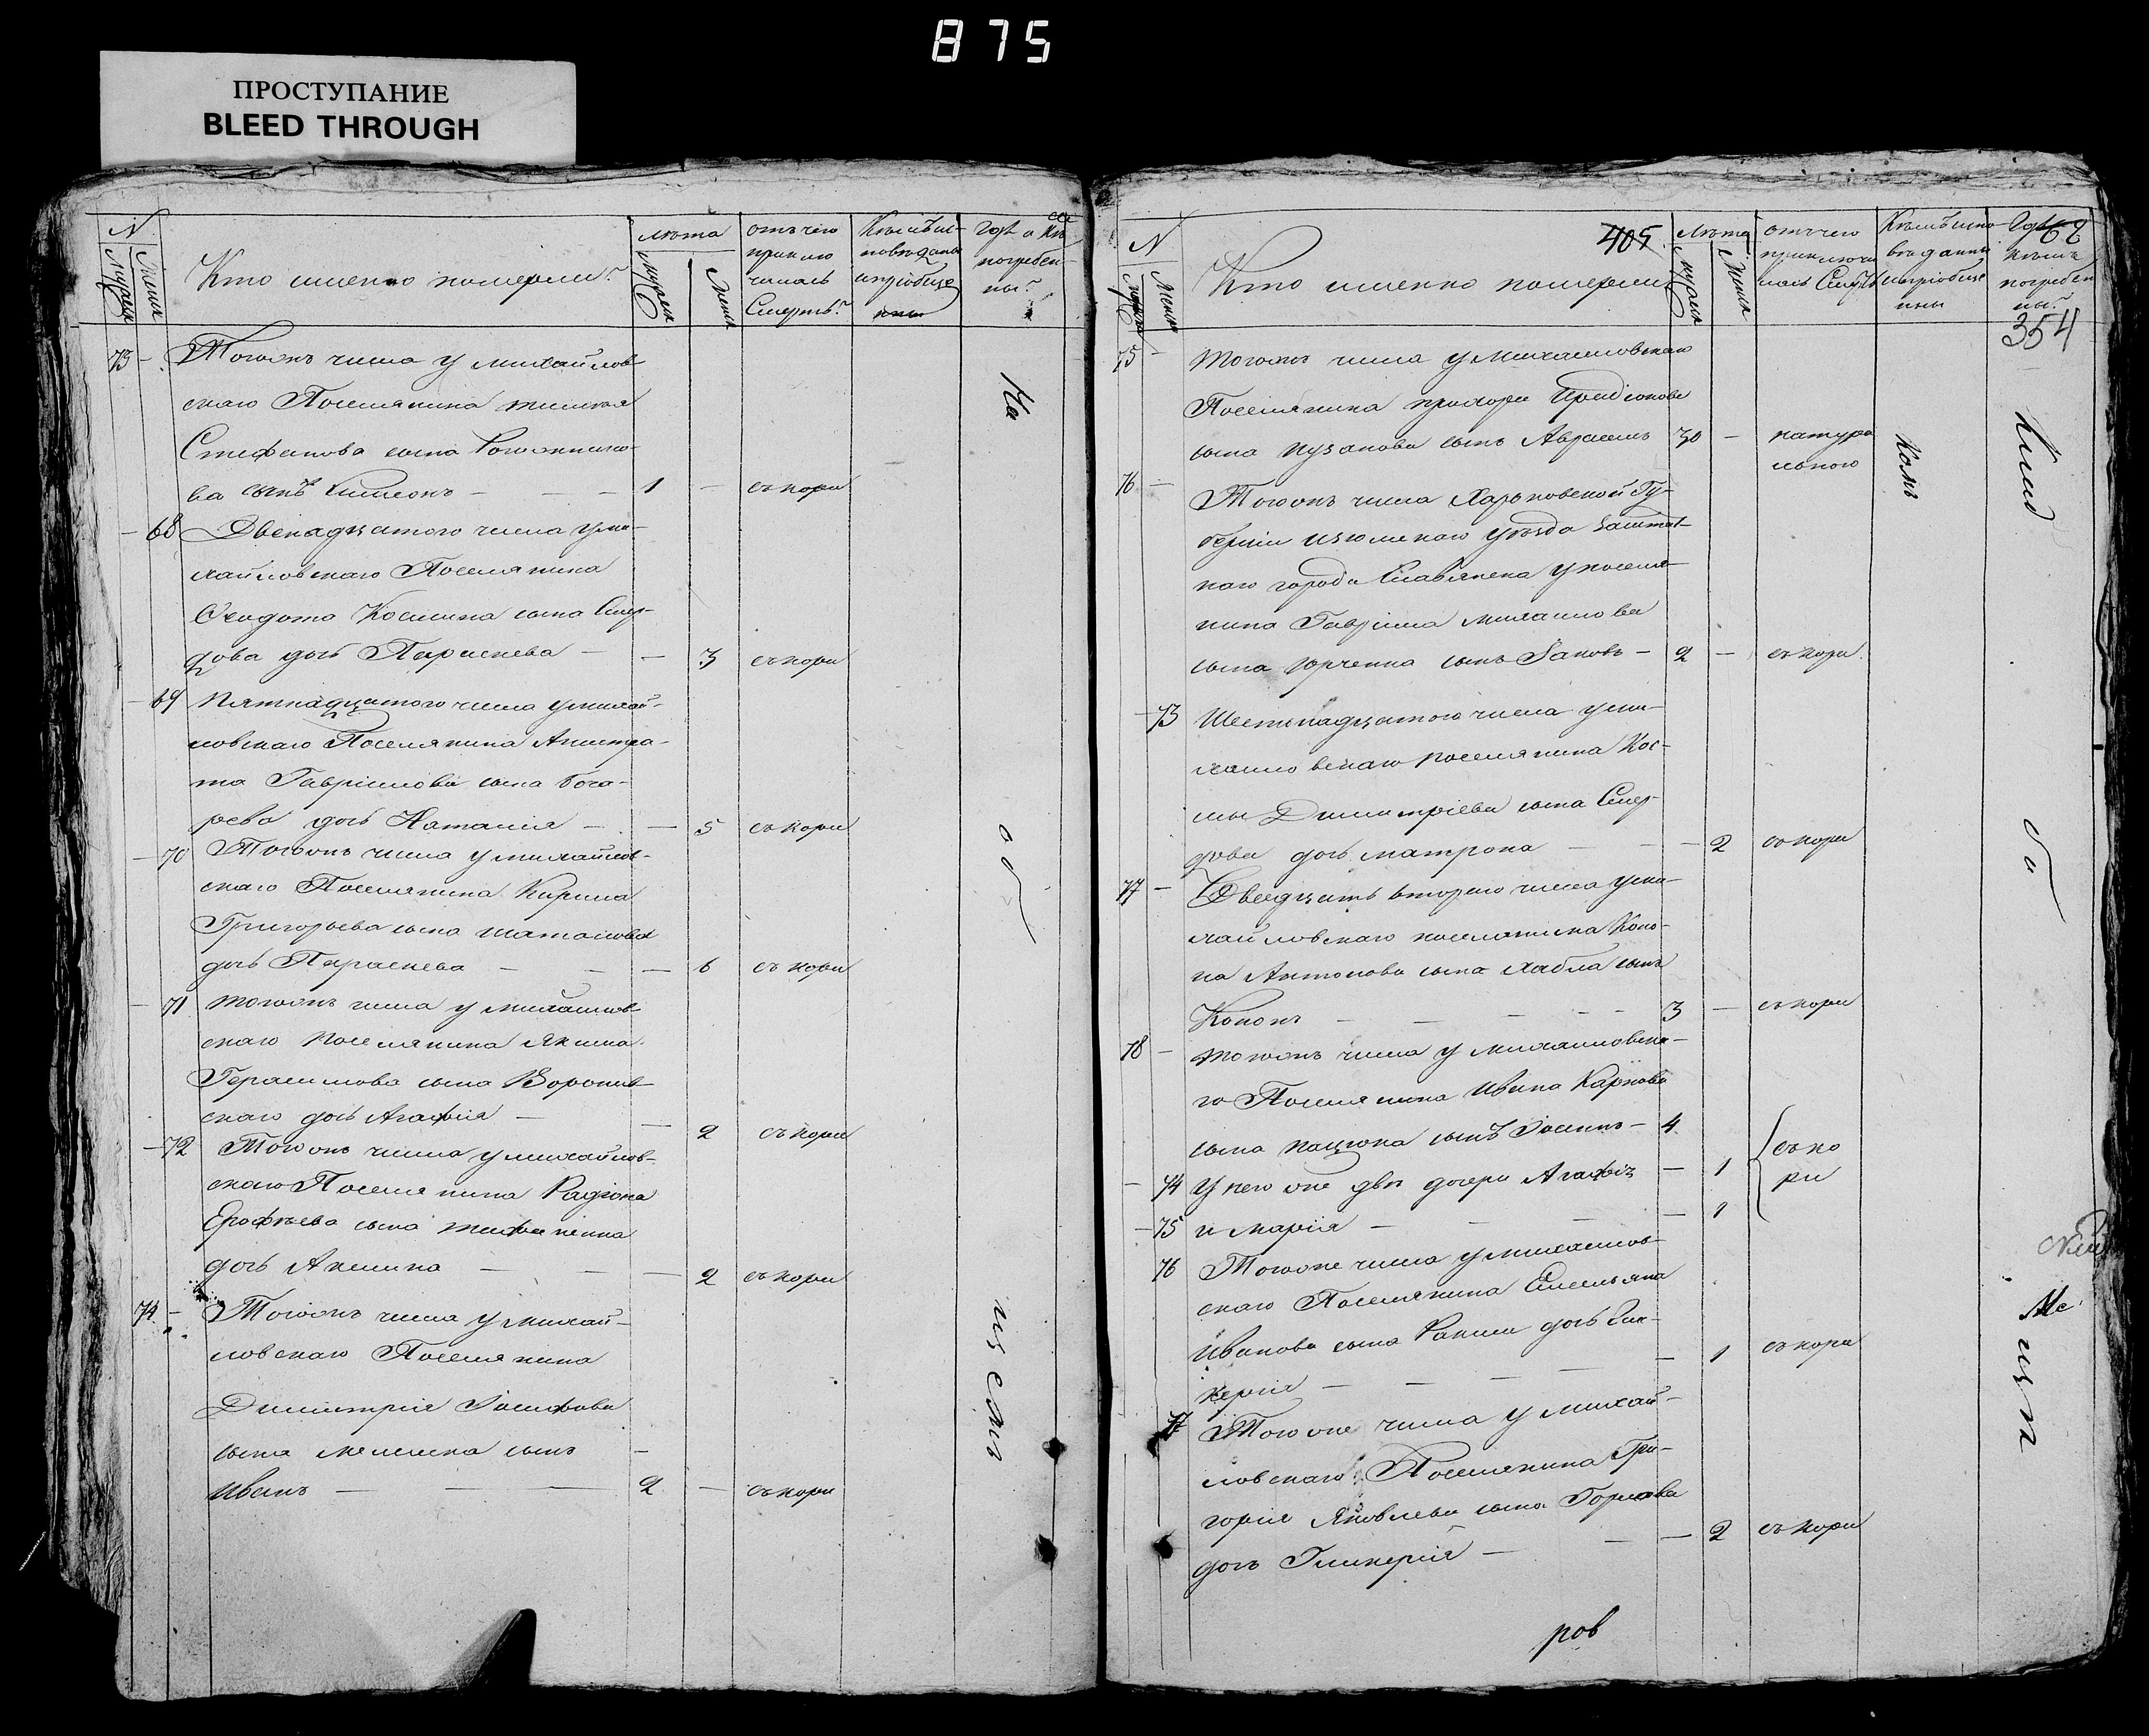 875
ПРОСТУПАНИЕ
BLEED THROUGH
N
Мужеск
Женск
Кто именно померли?
лѣта
мужеск
женск
отъ чего
приклю
чилась
Смерть?
Кѣмъ ис-
повѣданы
и пріобще
ны
Гдѣ и Кѣ
погребе-
ны?
73 - Тогожъ числа у михайлов
скаго Поселянина
Стефанова сына
ва сынъ Симеонъ - - - 1 - съ кори
- 68 Двенадцатого числа у ми-
хайловскаго Поселянина
Феодота Косьмина сына Смер-
дова дочь Параскева - - 3 съ кори
- 69 Пятнадцатого числа у михай-
ловскаго Поселянина Калистра-
та Гавріилова сына Бога-
рева дочь Наталія - - 5 съ кори
- 70 Тогожъ числа у михайлов-
скаго Поселянина Кирила
Григорьева сына Шаталова
дочь Параскева - - - 6 съ кори
- 71 Тогожъ числа у михайлов-
скаго Поселянина Якима
Герасимова сына Воронов-
скаго дочь Агафія - - 2 съ кори
- 72 Тогожъ числа у михайлов-
скаго Поселянина Радіона
Ерофѣева сына
дочь Акилина - - - 2 съ кори
74 - Тогожъ числа у михай-
ловскаго Поселянина
Димитрія Іосифова
сына сынъ -
Иванъ - - - 2 - съ кори
На
об
щемъ
405
62
354
N
Мужеск
Женск
Кто именно померли
Лѣта
мужеск
женск
отъ чего
приключи
лась Смерть
Кѣмъ испо
вѣданы
и пріобще
ны
Гдѣ
Кѣмъ
погребе
ны?
75 - Тогожъ числа у михайловскаго
Поселянина прохора Спиридонова
сына пузанова сынъ Авраамъ 30 - натура
льною
76 - Тогожъ числа Харьковской Гу-
берніи изюмскаго уѣзда Заштат-
наго города Славянска у поселя-
нина Гавріила михайлова
сына юрченка сынъ Іаковъ - 2 - съ кори
- 73 Шестьнадцатого числа у ми-
хайловскаго поселянина Кос-
мы Димитріева сына Смер-
дова дочь матрона - - - 2 съ кори
77 - Двадцать втораго числа у ми-
хайловскаго поселянина Коно-
на Антонова сына хабла сынъ
Кононъ - - - - - 3 - съ кори
78 - Тогожъ числа у михайловска-
го Поселянина Ивана Карпова
сына пацюка сынъ Іосипъ - 4
съ ко
ри
- 74 У него же двѣ дочери Агафія - 1
- 75 и марія - - - - 1
76 Тогоже числа у михайлов-
скаго Поселянина Емельяна
Иванова сына дочь Гли-
керія - - - - - 1 съ кори
77 Тогоже числа у михай-
ловскаго Поселянина Гри-
горія Яковлева сына Горлова
дочь Гликерія - - - 2 съ кори
Комъ
Клад
би
щѣ
ров